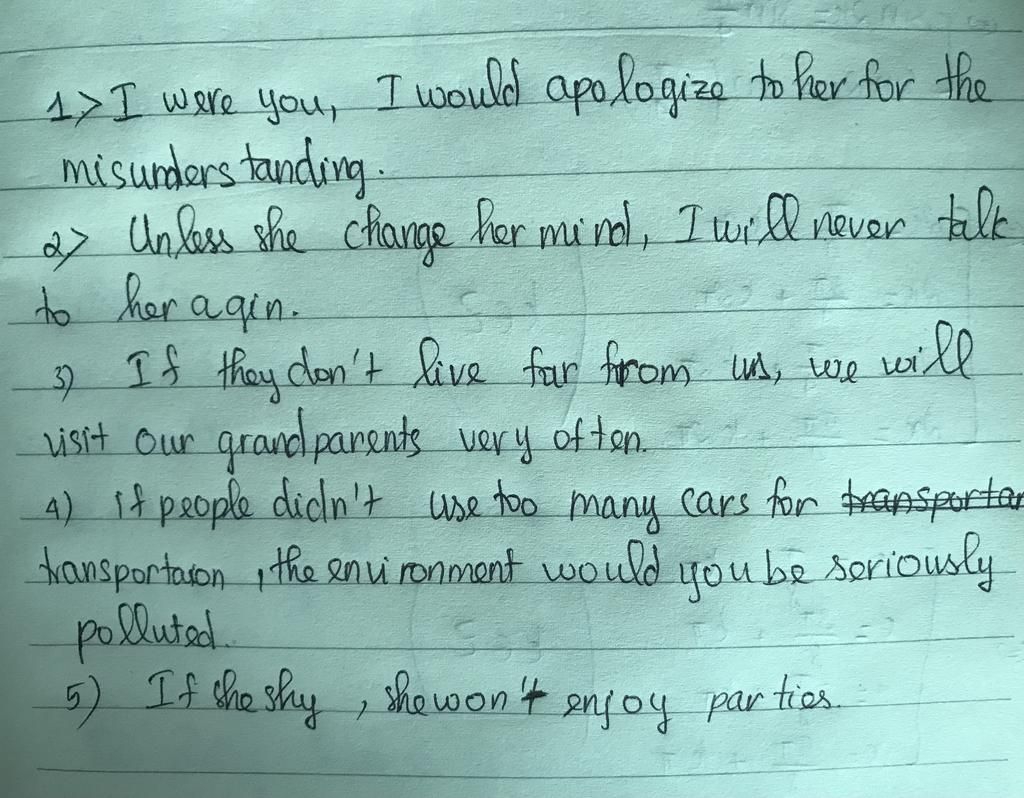 1> I were you, I would apologize to her for the
misunderstanding.
2> Unless she change her mind, I will never talk
to her agin.
3) If they don't live far from us, we will
visit our grandparents very often.
4) if people didn't use too many cars for transportar
transportaion, the environment would you be seriously
polluted.
5) If she shy, she won't enjoy parties.